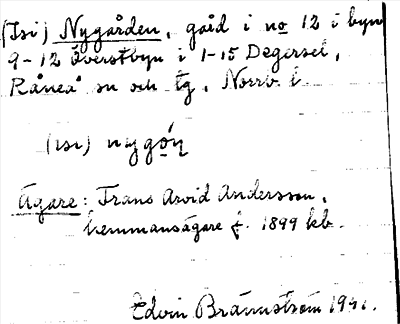 (Isi) Nygården, gård i no 12 i byn
9-12 Överstbyn i 1-15 Degersel,
Råneå sn och tg, Norrb. l.
(ısı) nygóṇ
Ägare: Frans Arvid Andersson,
hemmansägare f. 1899 kb.
Edvin Brännström 1941.